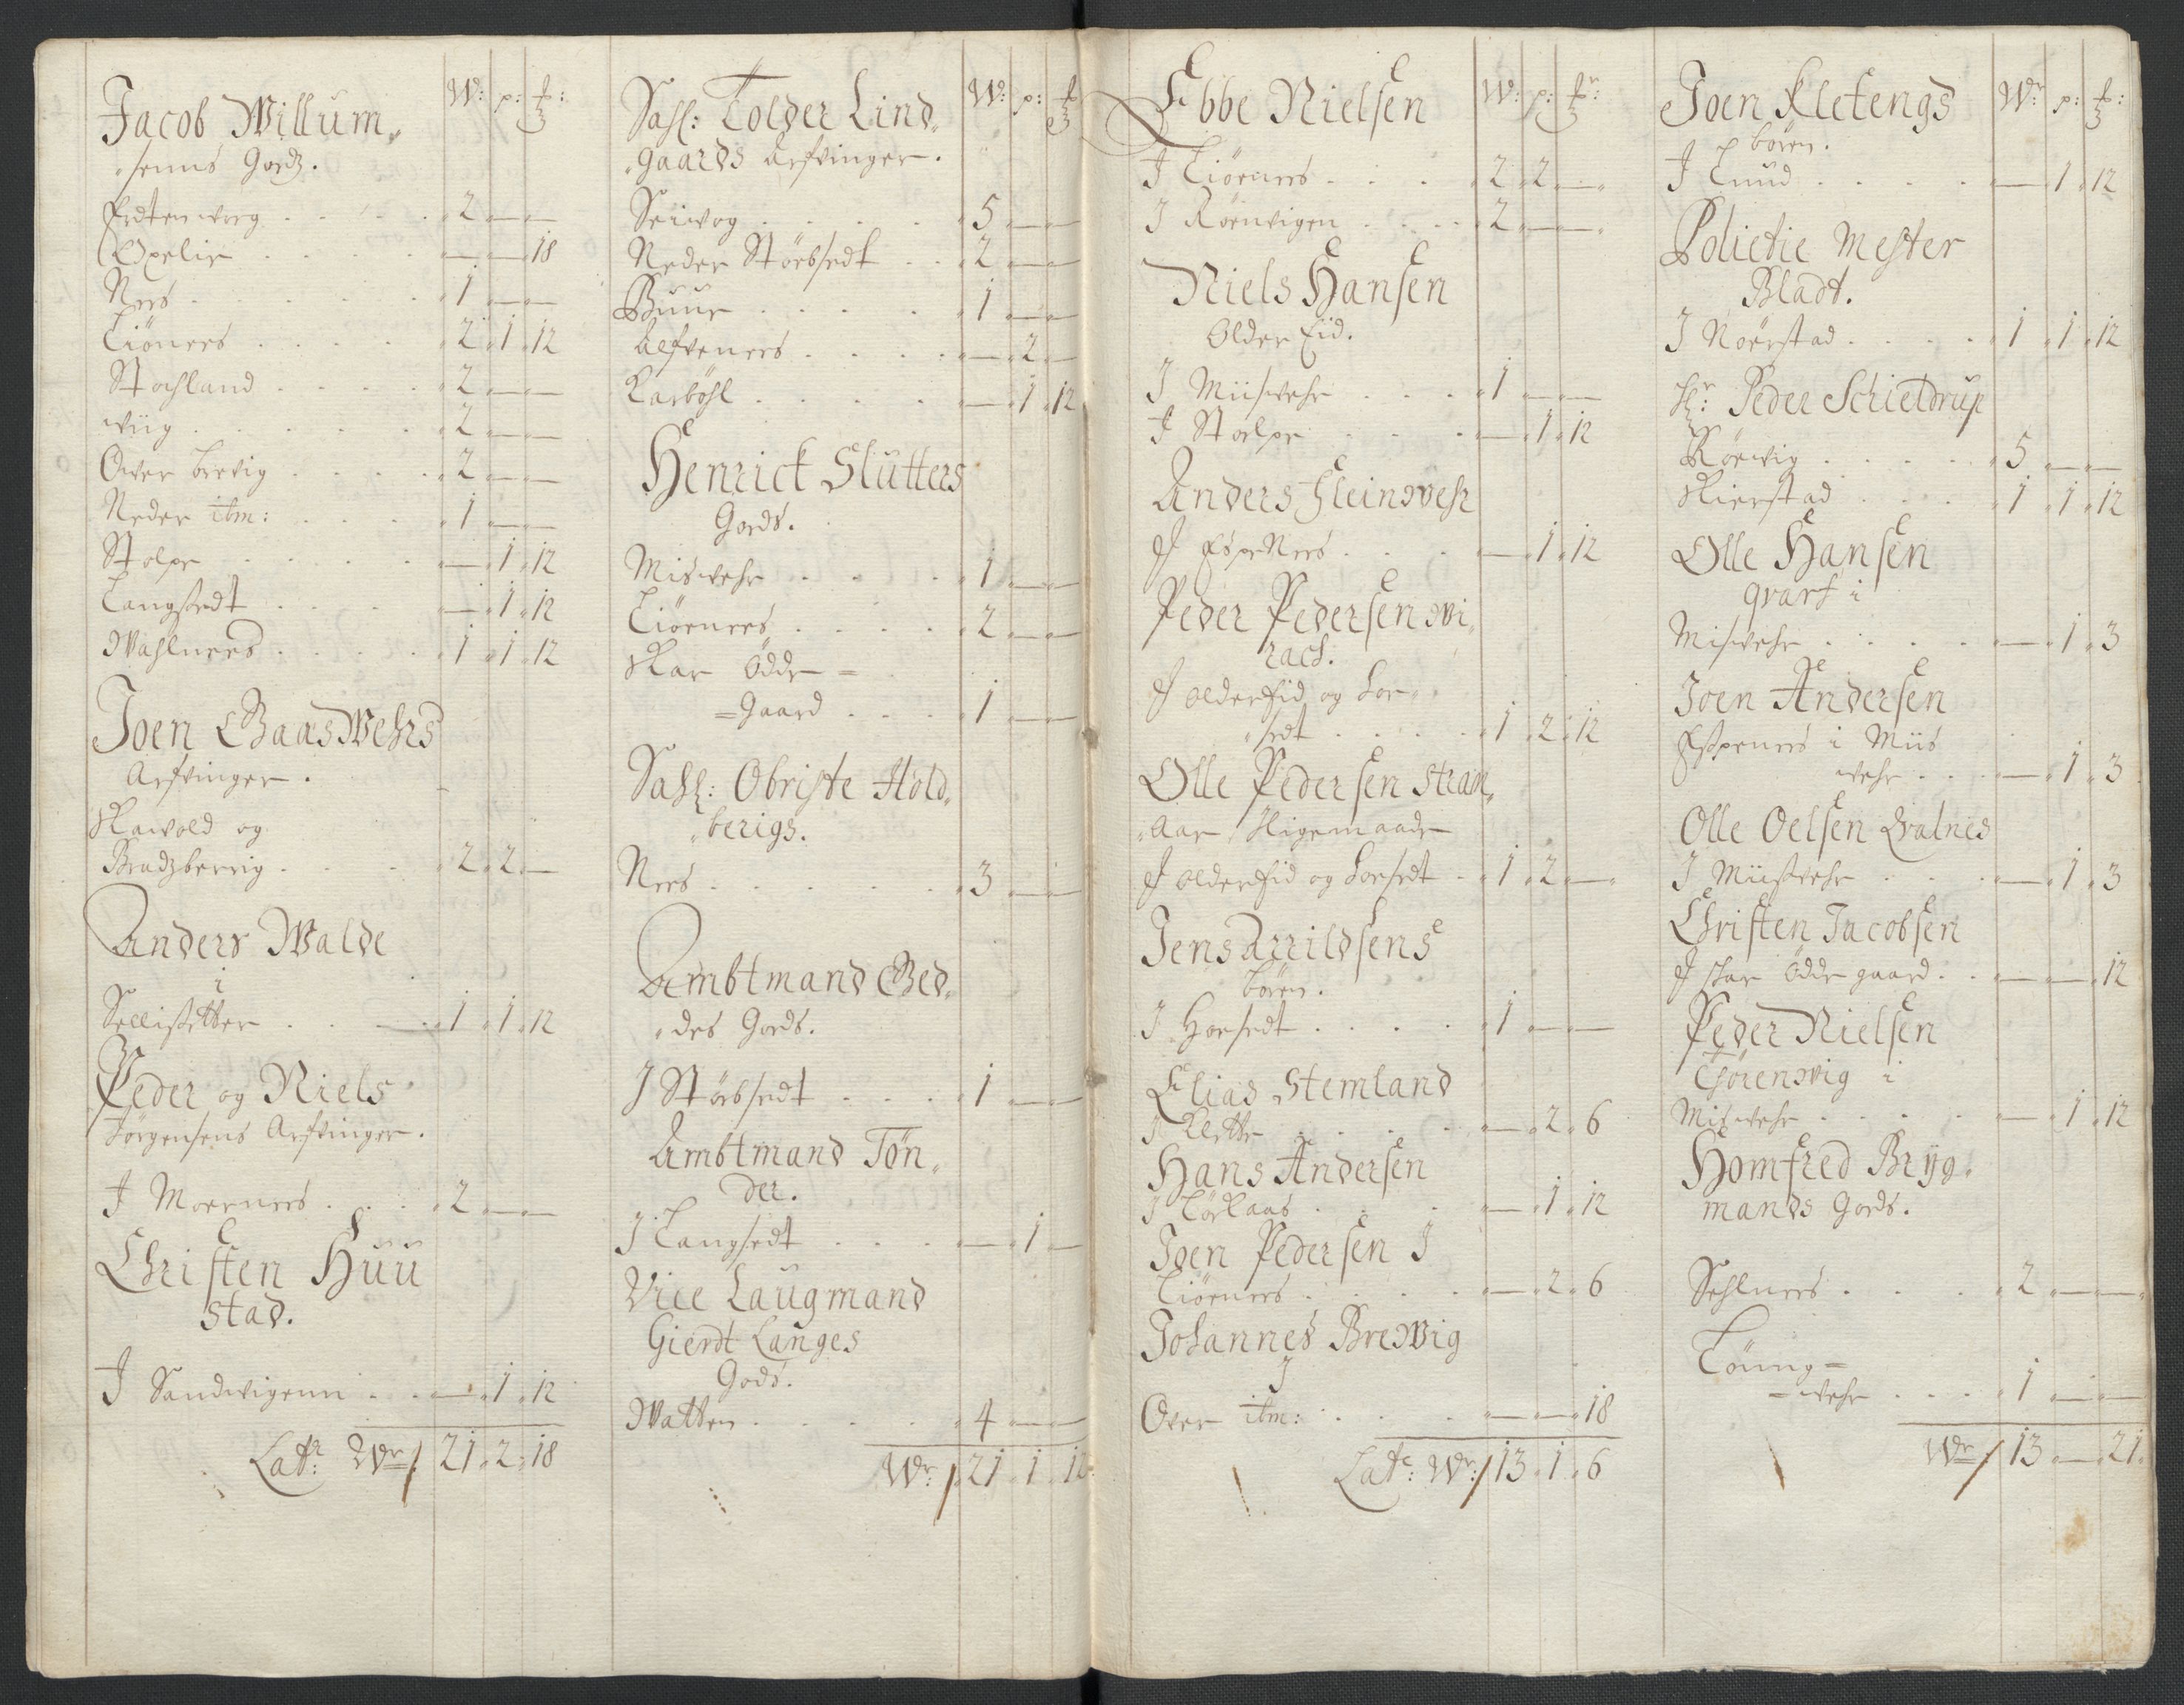 Jacob Willum„ W: p: ꝉ:
„senns Godz.
2 — —
Opelie — — 18
Ness 1 — —
Tiönnes 2 1 12
Stochland 2 — —
wiig 2 — —
Over brevig 2 — —
Neder itm: 1 — —
Stolpe — 1 12
Langstedt — 1 12
Wahlness 1 1 12
Joen Baaswehrs
Arfvinger.
Skavold og
Bradzberrig 2 2 —
Anders Walde
i
Sellisetter 1 1 12
Peder og Niels
Jörgensens Arfvinger.
J Moerness 2 — —
Christen Huu
stad.
J Sandvigenn — 1 12
Latr: Wr 21 2 18
Sahl: Tolder Lind„ W: p:
„gaards Arfvinger.
Seivog 5 — —
Neder Störbsedt 2 — —
Buue 1 — —
Alfveness — 2 —
Karböhl — 1 12
Henrick Slutters
Gods.
Misvehr 1 — —
Tiörness 2 — —
Skar Ödde =
=Gaard 1 — —
Sahl: Obriste Hold„
„berigs.
Ness 3 — —
Ambtmand Bed„
„des Gods.
J Störbsedt 1 — —
Ambtmand Tön„
der.
J Langsedt — 1 —
Vice Laugmand
Gierdt Langes
Gods.
Watten 4 — —
Wr: 21 1 12
Ebbe Nielsen W: p:
J Tiörness 2 2 —
J Körnvigen 2 — —
Niels Hansen
Older Eid.
J Miisvehr 1 — —
J Stolpe — 1 12
Anders Steinsvehr
J Espeness — 1 12
Peder Pedersen wi„
rach.
J olderEid og Lor„
„sedt 1 2 12
Olle Pedersen Stram„
„Aar Ligemaade
J olderEid og Lorsedt 1 2 —
Jens Arrildsens
börn.
J Horsedt 1 — —
Elias Stemland
J Klette — 2 6
Hans Andersen
J Lörkaas — 1 12
Joen Pedersen J
Tiörness — 2 6
Johannes Bredvig
J
Over itm: — — 18
Latr: Wr: 13 1 6
Joen Kletengs Wr p:
börn.
J Lund — 1 12
Polietie Mester
Bladt.
J Nörstad 1 1 12
Hr: Peder Schieldrup
Rörvig 5 — —
Kierstad 1 1 12
Olle Hansen
qvarf i
Misvehr — 1 3
Joen Andersen
Espenes i Miis
vehr — 1 3
Olle Oelsen Qvalnes
J Miisvehr — 1 3
Christen Jacobsen
J skar Ödde gaard — — 12
Peder Nielsen
Thörensvig i
Misvehr — 1 12
Homfred Bryg„
mands Gods.
Sehlness 2 — —
Töung=
=vehr 1 — —
Wr 13 — 21